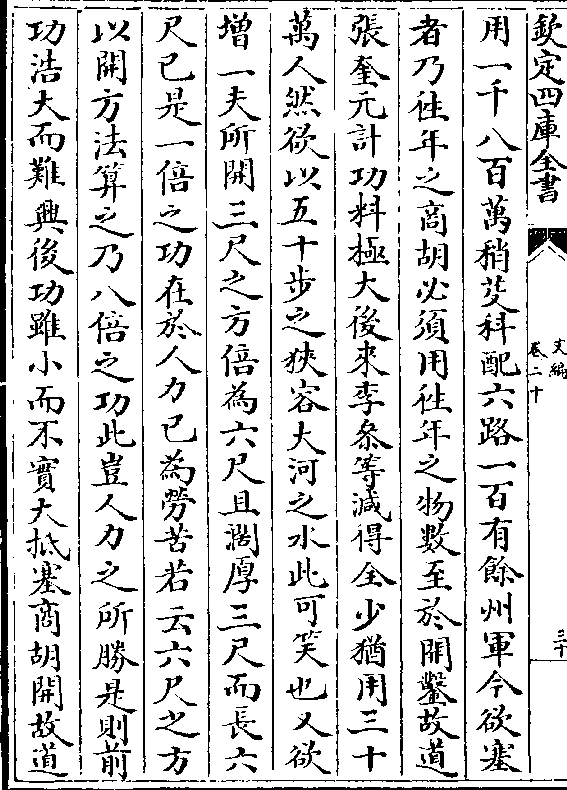 欽定四庫全書
文編
卷二十
三十
用一千八百萬稍芟科配六路一百有餘州軍今欲塞
者乃往年之商胡必須用往年之物數至於開鑿故道
張奎元計功料極大後來李叅等減得全少猶用三十
萬人然欲以五十步之狹容大河之水此可笑也又欲
增一夫所開三尺之方倍為六尺且濶厚三尺而長六
尺已是一倍之功在於人力已為勞苦若云六尺之方
以開方法算之乃八倍之功此豈人力之所勝是則前
功浩大而難興後功雖小而不實大抵塞商胡開故道